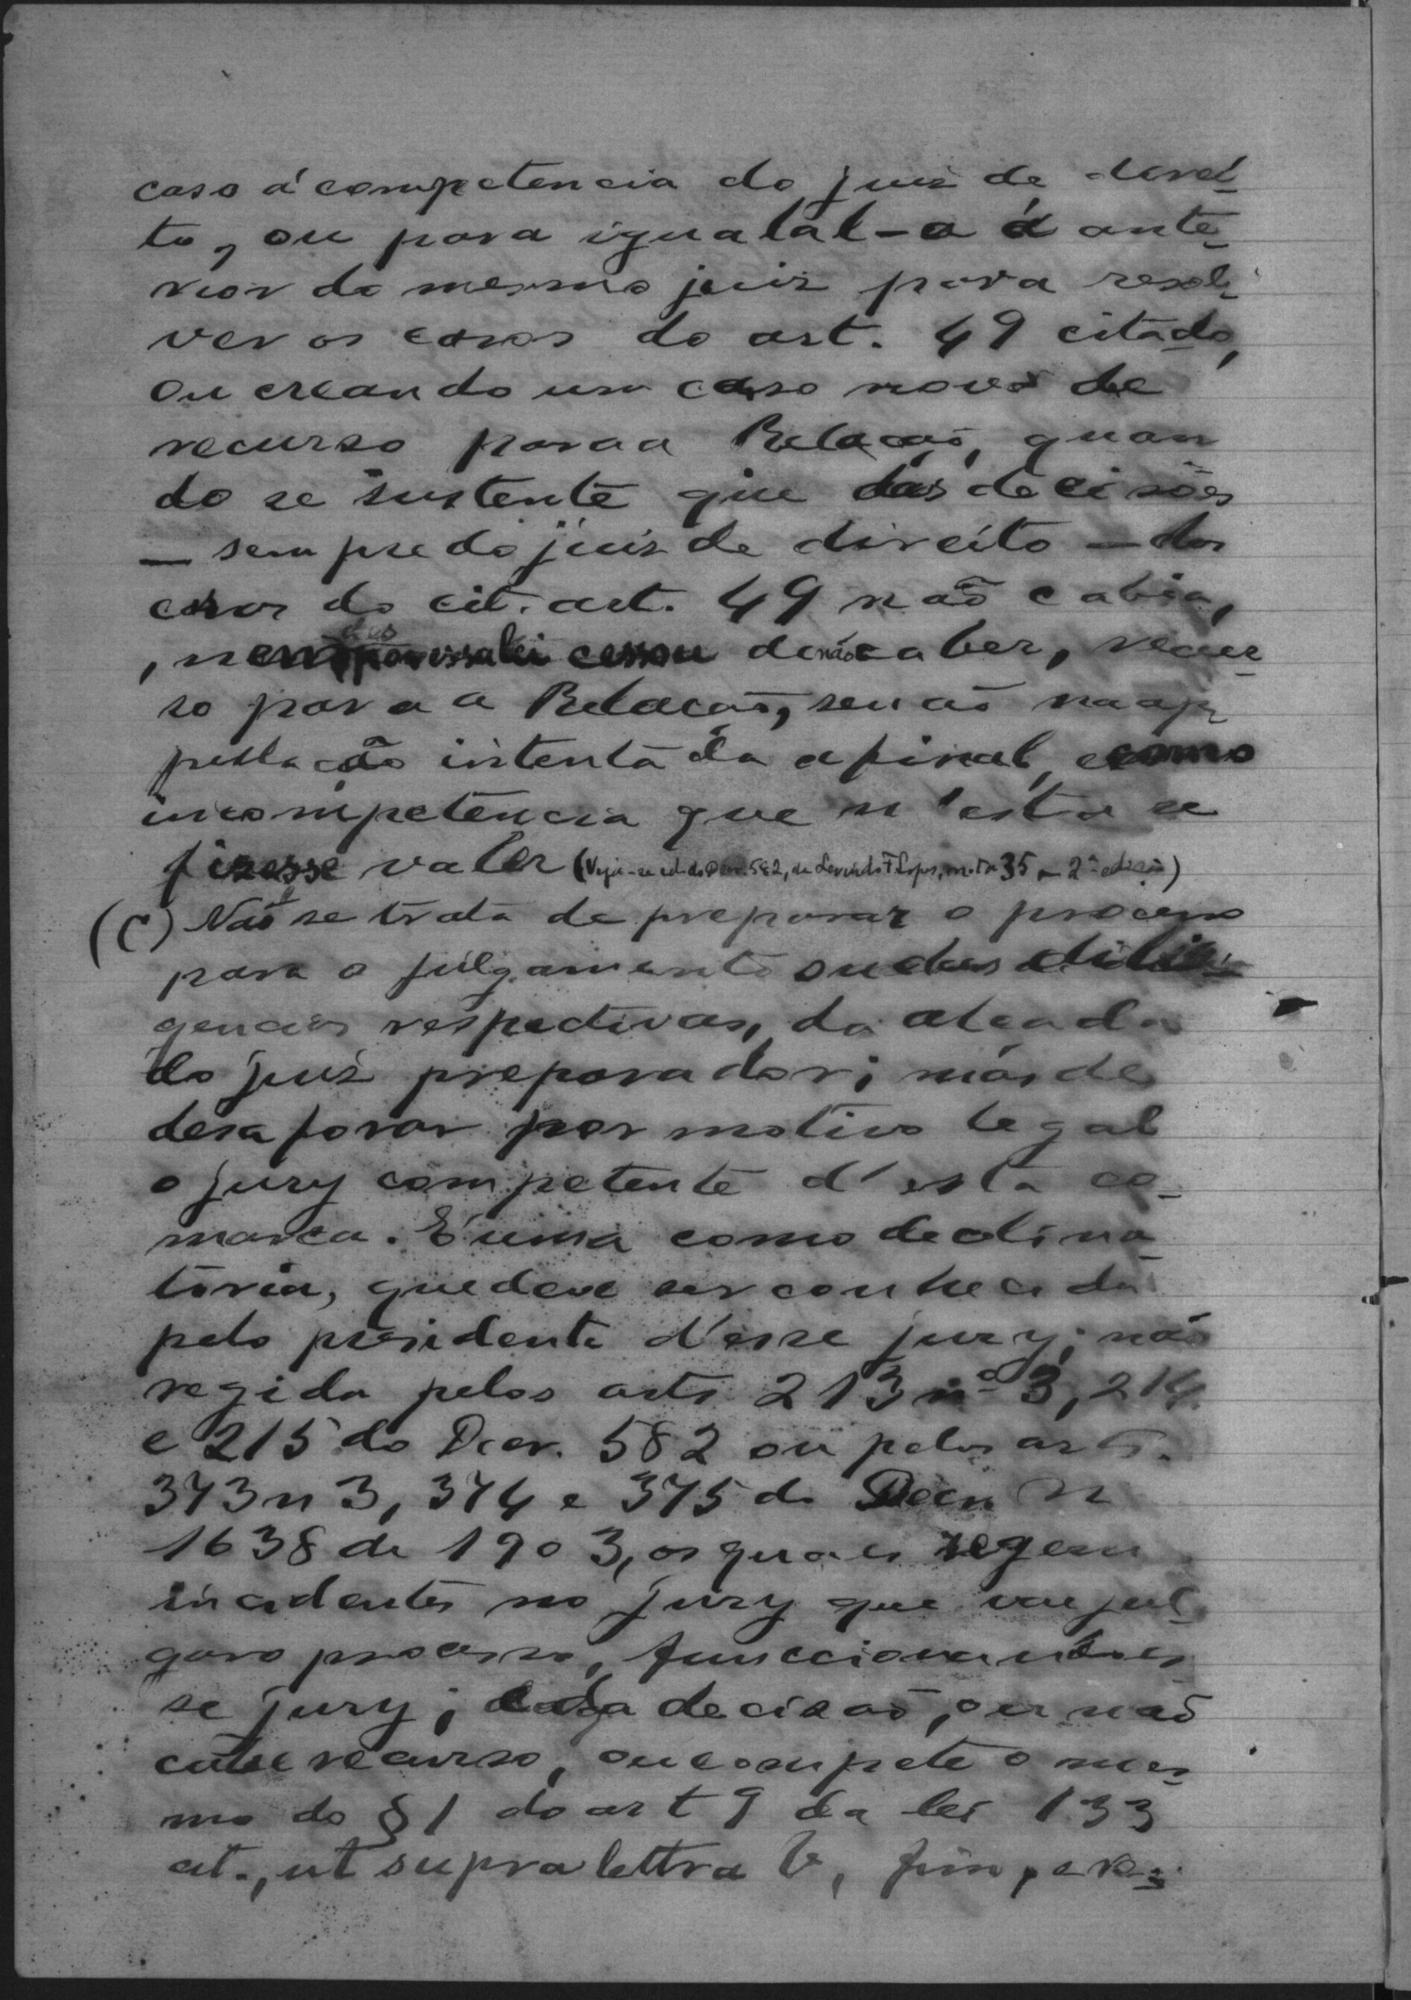 caso á competencia do juiz de direi-
to, ou para igualal-a á ante-
rior do mesmo juiz para resol-
ver os casos do art. 49 citado,
ou creando um caso novo de
recurso para a Relação, quan
do se sustente que das decisões
— sempre do juiz de direito — dos
casos do cit. art. 49 não cabia,
, nem por essa lei cessou de não caber, recur-
so para a Relação, senão na ap-
pellação intentada afinal, e como
incompetencia que n'esta se
fizesse valer (Veja-se ed. do Decr. 582, de Levindo F. Lopes, nota 35 – 2ª edição)
(C) Não se trata de preparar o processo
para o julgamento ou das dili-
gencias respectivas, da alçada
do juiz preparador; mas de
desaforar por motivo legal
o jury competente d'esta co-
marca. É uma como declina-
toria, que deve ser conhecida
pelo presidente d'esse jury; não
regida pelos arts 213 nº 3, 214
e 215 do Decr. 582 ou pelos arts.
373 n 3, 374 e 375 do Decr. n
1638 de 1903, os quaes regem
incidentes no jury que vae jul-
gar o processo, funccionando es-
se jury; e da decisão, ou não
cabe recurso, ou compete o mes-
mo do § 1 do art 9 da lei 133
cit., ut supra lettra b, fim, e